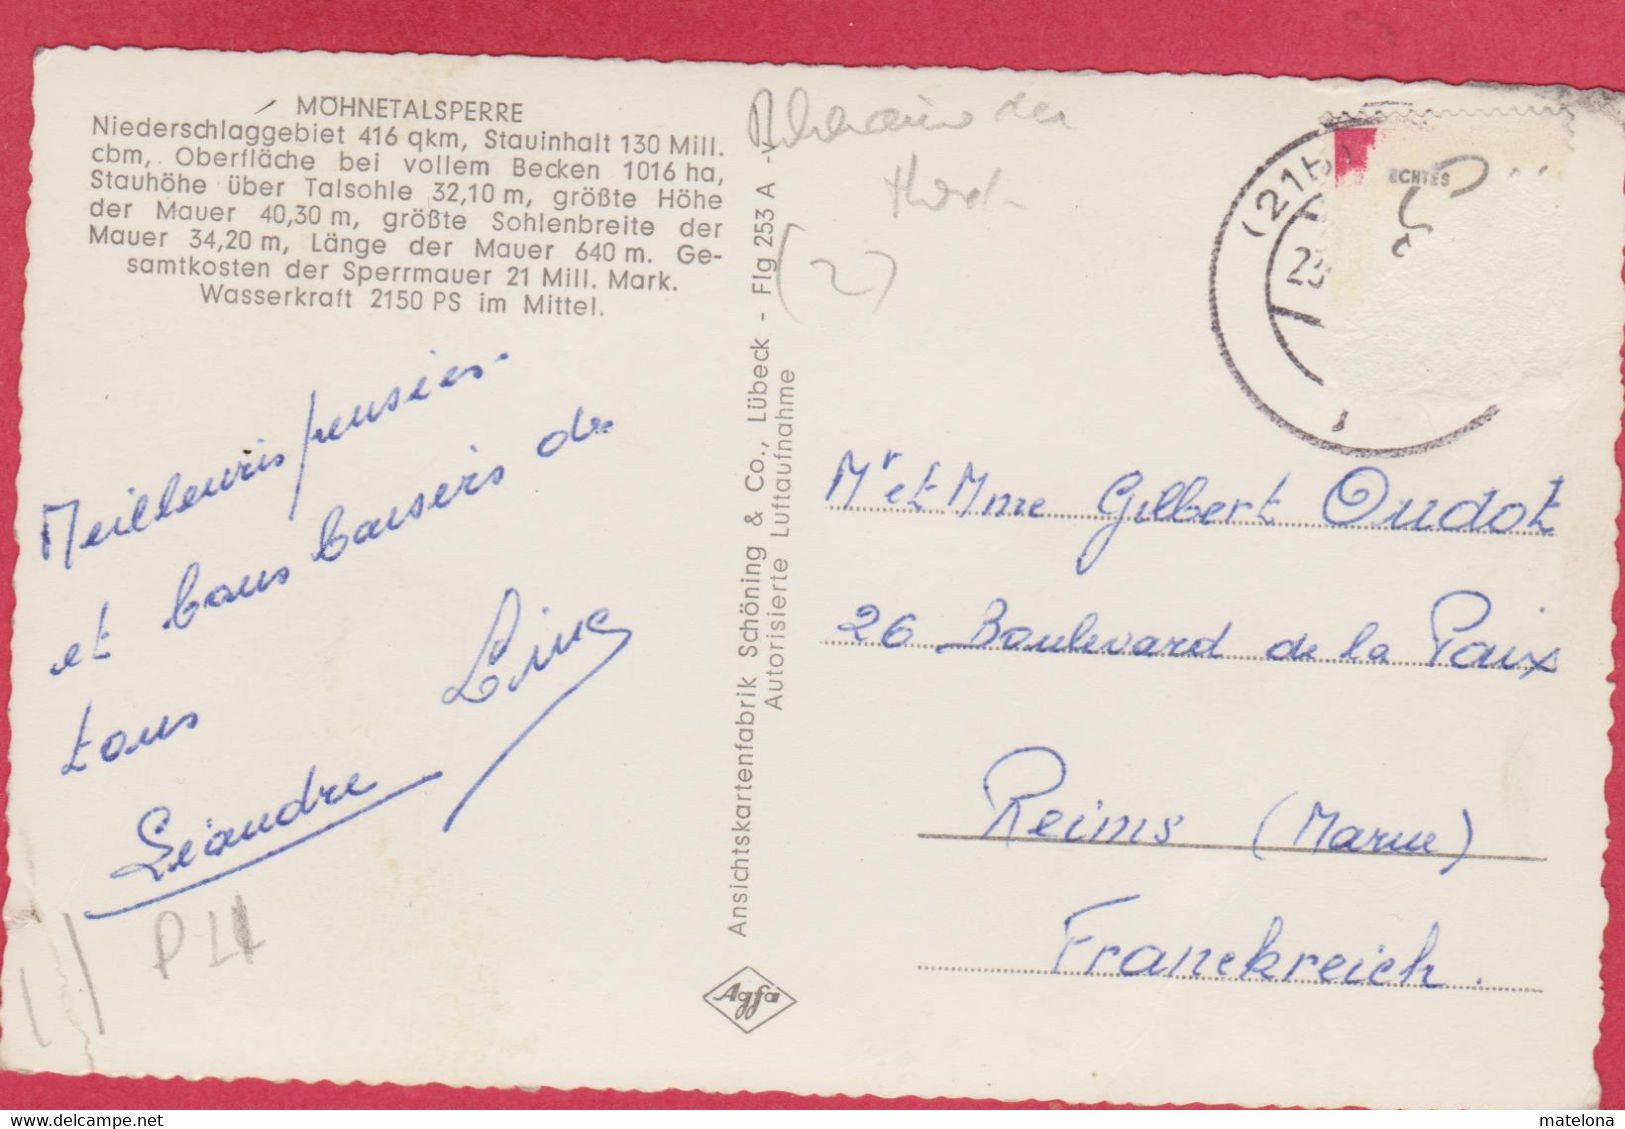 MÖHNETALSPERRE
Niederschlaggebiet 416 qkm, Stauinhalt 130 Mill.
cbm, Oberfläche bei vollem Becken 1016 ha,
Stauhöhe über Talsohle 32,10 m, größte Höhe
der Mauer 40,30 m, größte Sohlenbreite der
Mauer 34,20 m, Länge der Mauer 640 m. Ge-
samtkosten der Sperrmauer 21 Mill. Mark.
Wasserkraft 2150 PS im Mittel.
Meilleures pensées
et bons baisers de
tous
Line
Léandre
P LH
Ansichtskartenfabrik Schöning & Co., Lübeck - Flg 253 A -V
Autorisierte Luftaufnahme
Agfa
(2)
(21b)
23
ECHTES
Mr et Mme Gilbert Oudot
26 Boulevard de la Paix
Reims (Marne)
Franckreich.
delcampe.net
matelona